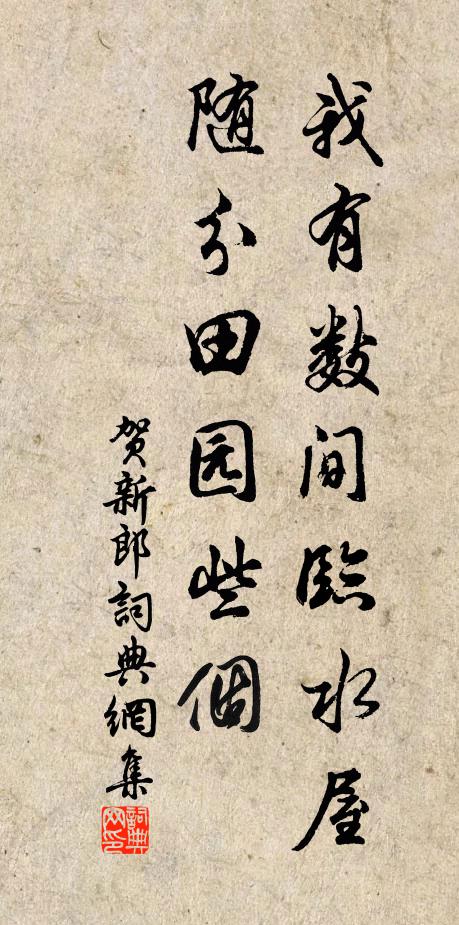 我有数间臨水屋
随分田园些個
贺新郎詞典網集
詞典网印